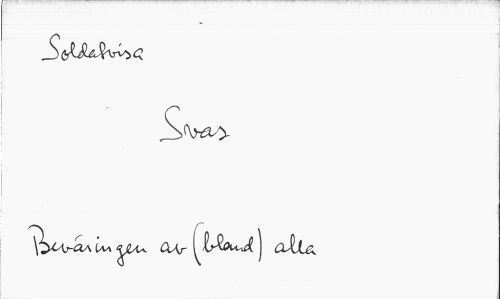 Soldatvisa
Svas
Beväringen av (bland) alla